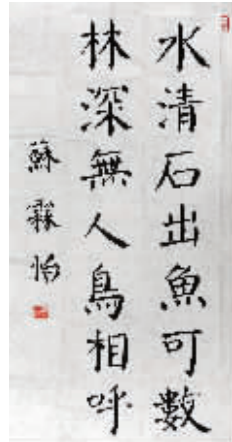 水清石出魚可數
林深無人鳥相呼
蘇霖怡